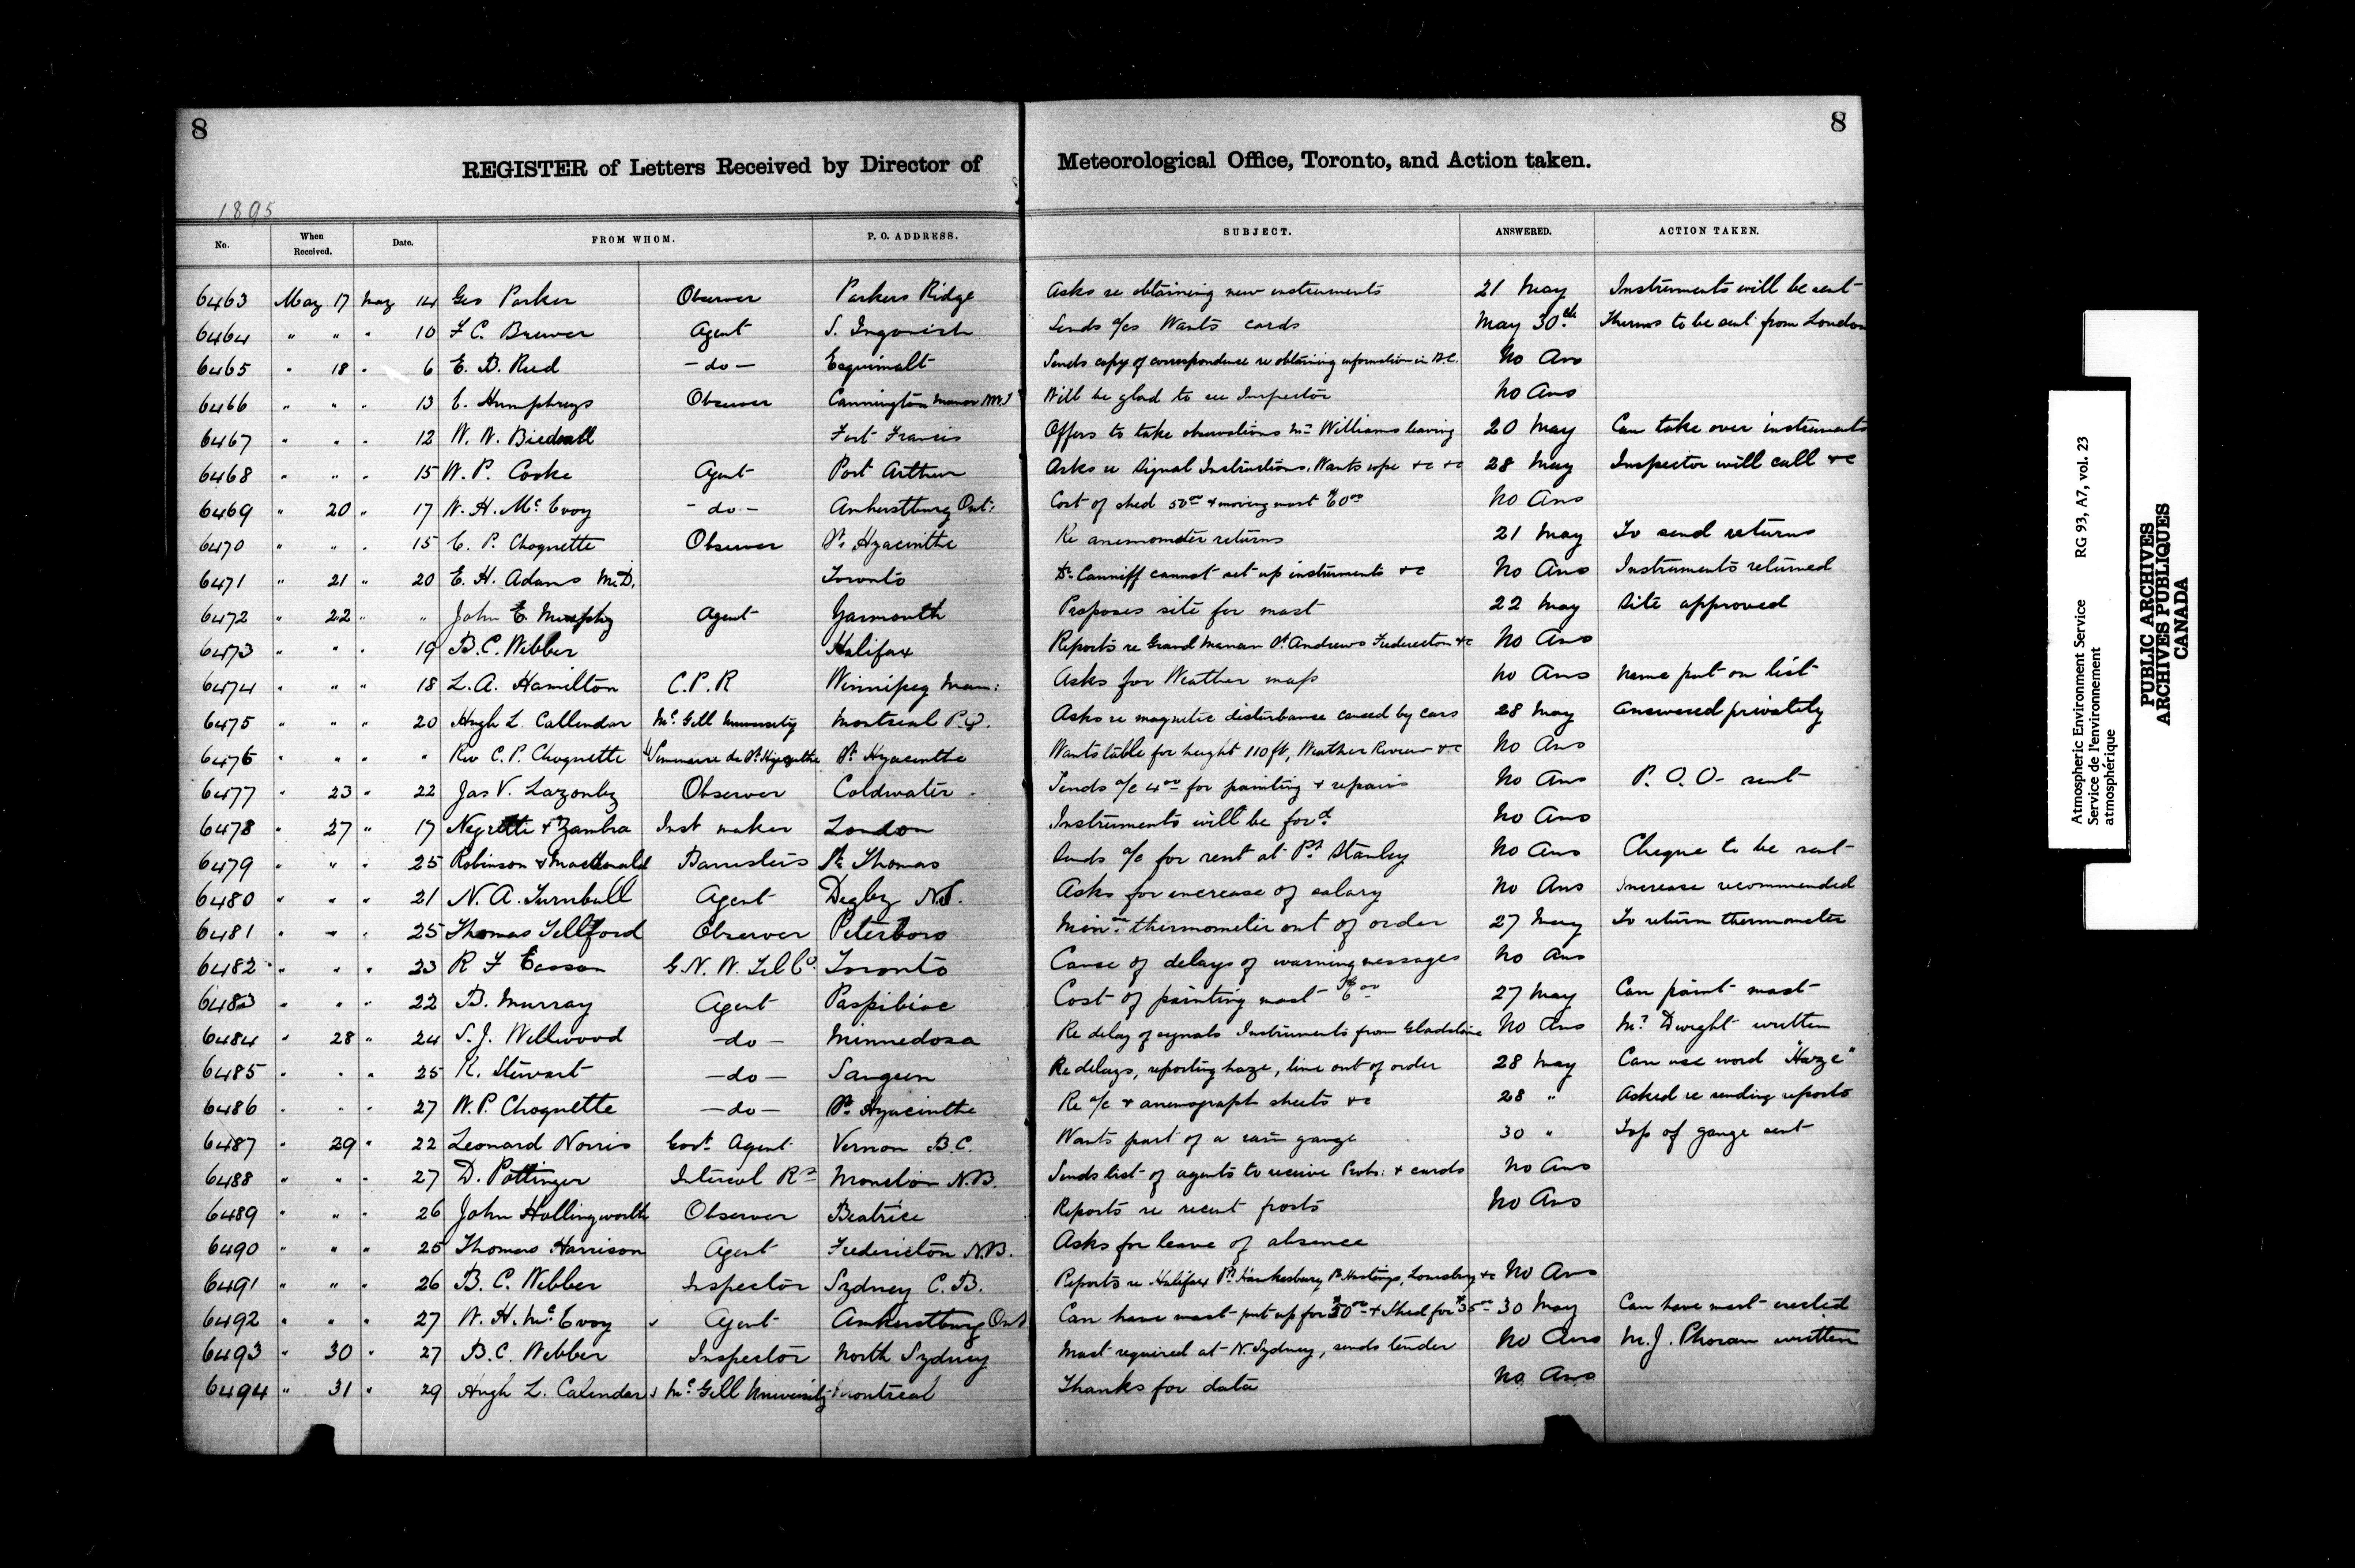 8
8
REGISTER of Letters Received by Director of Meteorological Office, Toronto, and Action taken.
1895
No. When Received. Date. FROM WHOM. P. O. ADDRESS. SUBJECT. ANSWERED. ACTION TAKEN.
6463 May 17 May 14 Geo Parker Observer Parkers Ridge Asks re obtaining new instruments 21 May Instruments will be sent
6464 " " " 10 F C. Brewer Agent S. Ingonish Sends a/cs Wants cards May 30th Thermos to be sent from London
6465 " 18 " 6 E. B. Reed - do - Esquimalt Sends copy of correspondence re obtaining information in B.C. No Ans
6466 " " " 13 C. Humphrys Observer Cannington Manor N.W.T Will be glad to see Inspector No Ans
6467 " " " 12 W. N. Fort Francis Offers to take observations Mr Williams leaving 20 May Can take over instruments
6468 " " " 15 W. P. Cooke Agent Port Arthur Asks re Signal Instructions. Wants rope &c &c 28 May Inspector will call &c
6469 " 20 " 17 W. H. Mc Evoy - do - Amherstburg Ont: Cost of shed 50 00 & moving mast $60 00 No Ans
6470 " " " 15 C. P. Choquette Observer St. Hyacinthe Re anemometer returns 21 May To send returns
6471 " 21 " 20 E. H. Adams M.D. Toronto Dr Canniff cannot set up instruments &c No Ans Instruments returned
6472 " 22 " " John E. Murphy Agent Yarmouth Proposes site for mast 22 May Site approved
6473 " " " 19 B.C. Webber Halifax Reports re Grand Manan St. Andrews Fredericton &c No Ans
6474 " " " 18 L.A. Hamilton C.P.R Winnipeg Man: Asks for Weather map No Ans Name put on list
6475 " " " 20 Hugh L. Callendar Mc. Gill University Montreal P.Q. Asks re magnetic disturbance caused by cars 28 May Answered privately
6476 " " " " Rev C.P. Choquette Seminaire de St. Hyacinthe St. Hyacinthe Wants table for height 110 ft, Weather Review &c No Ans
6477 " 23 " 22 Jas V. Lazonby Observer Coldwater Sends a/c 4 00 for painting & repairs No Ans P.O.O- sent
6478 " 27 " 17 Negretti & Zambra Inst maker London Instruments will be for'd No Ans
6479 " " " 25 Robinson & Macdonald Barristers St. Thomas Sends a/c for rent at Pt Stanley No Ans Cheque to be sent
6480 " " " 21 N. A. Turnbull Agent Digby NS. Asks for increase of salary No Ans Increase recommended
6481 " " " 25 Thomas Tellford Observer Peterboro Min'm thermometer out of order 27 May To return thermometer
6482 " " " 23 R F Easson G.N.W. Tel Co. Toronto Cause of delays of warning messages No Ans
6483 " " " 22 B. Murray Agent Paspibiac Cost of painting mast $6 00 27 May Can paint mast
6484 " 28 " 24 S. J. Wellwood - do - Minnedosa Re delay of signals Instruments from Gladstone No Ans Mr Dwight written
6485 " " " 25 K. Stewart - do - Saugeen Re delays, reporting haze, line out of order 28 May Can use word "Haze"
6486 " " " 27 W.P. Choquette - do - St. Hyacinthe Re a/c & anemograph sheets &c 28 " Asked re sending reports
6487 " 29 " 22 Leonard Norris Govt Agent Vernon B.C. Wants part of a rain gauge 30 " Top of gauge sent
6488 " " " 27 D. Pottinger Intercol Ry Moncton N.B. Sends list of agents to receive Probs: & cards No Ans
6489 " " " 26 John Hollingworth Observer Beatrice Reports re recent frosts No Ans
6490 " " " 25 Thomas Harrison Agent Fredericton N.B. Asks for leave of absence
6491 " " " 26 B. C. Webber Inspector Sydney C.B. Reports re Halifax Pt. Hawkesbury Pt Hastings, Louisburg &c No Ans
6492 " " " 27 W. H. Mc. Evoy Agent Amherstburg Ont Can have mast put up for $50 00 & Shed for $35 00 30 May Can have mast erected
6493 " 30 " 27 B.C. Webber Inspector North Sydney Mast required at N. Sydney, sends tender No Ans M.J. Phoran written
6494 " 31 " 29 Hugh L. Calendar Mc. Gill University Montreal Thanks for data No Ans
Atmospheric Environment Service RG 93, A7, vol. 23
Service de l'environnement
atmosphérique
PUBLIC ARCHIVES
ARCHIVES PUBLIQUES
CANADA